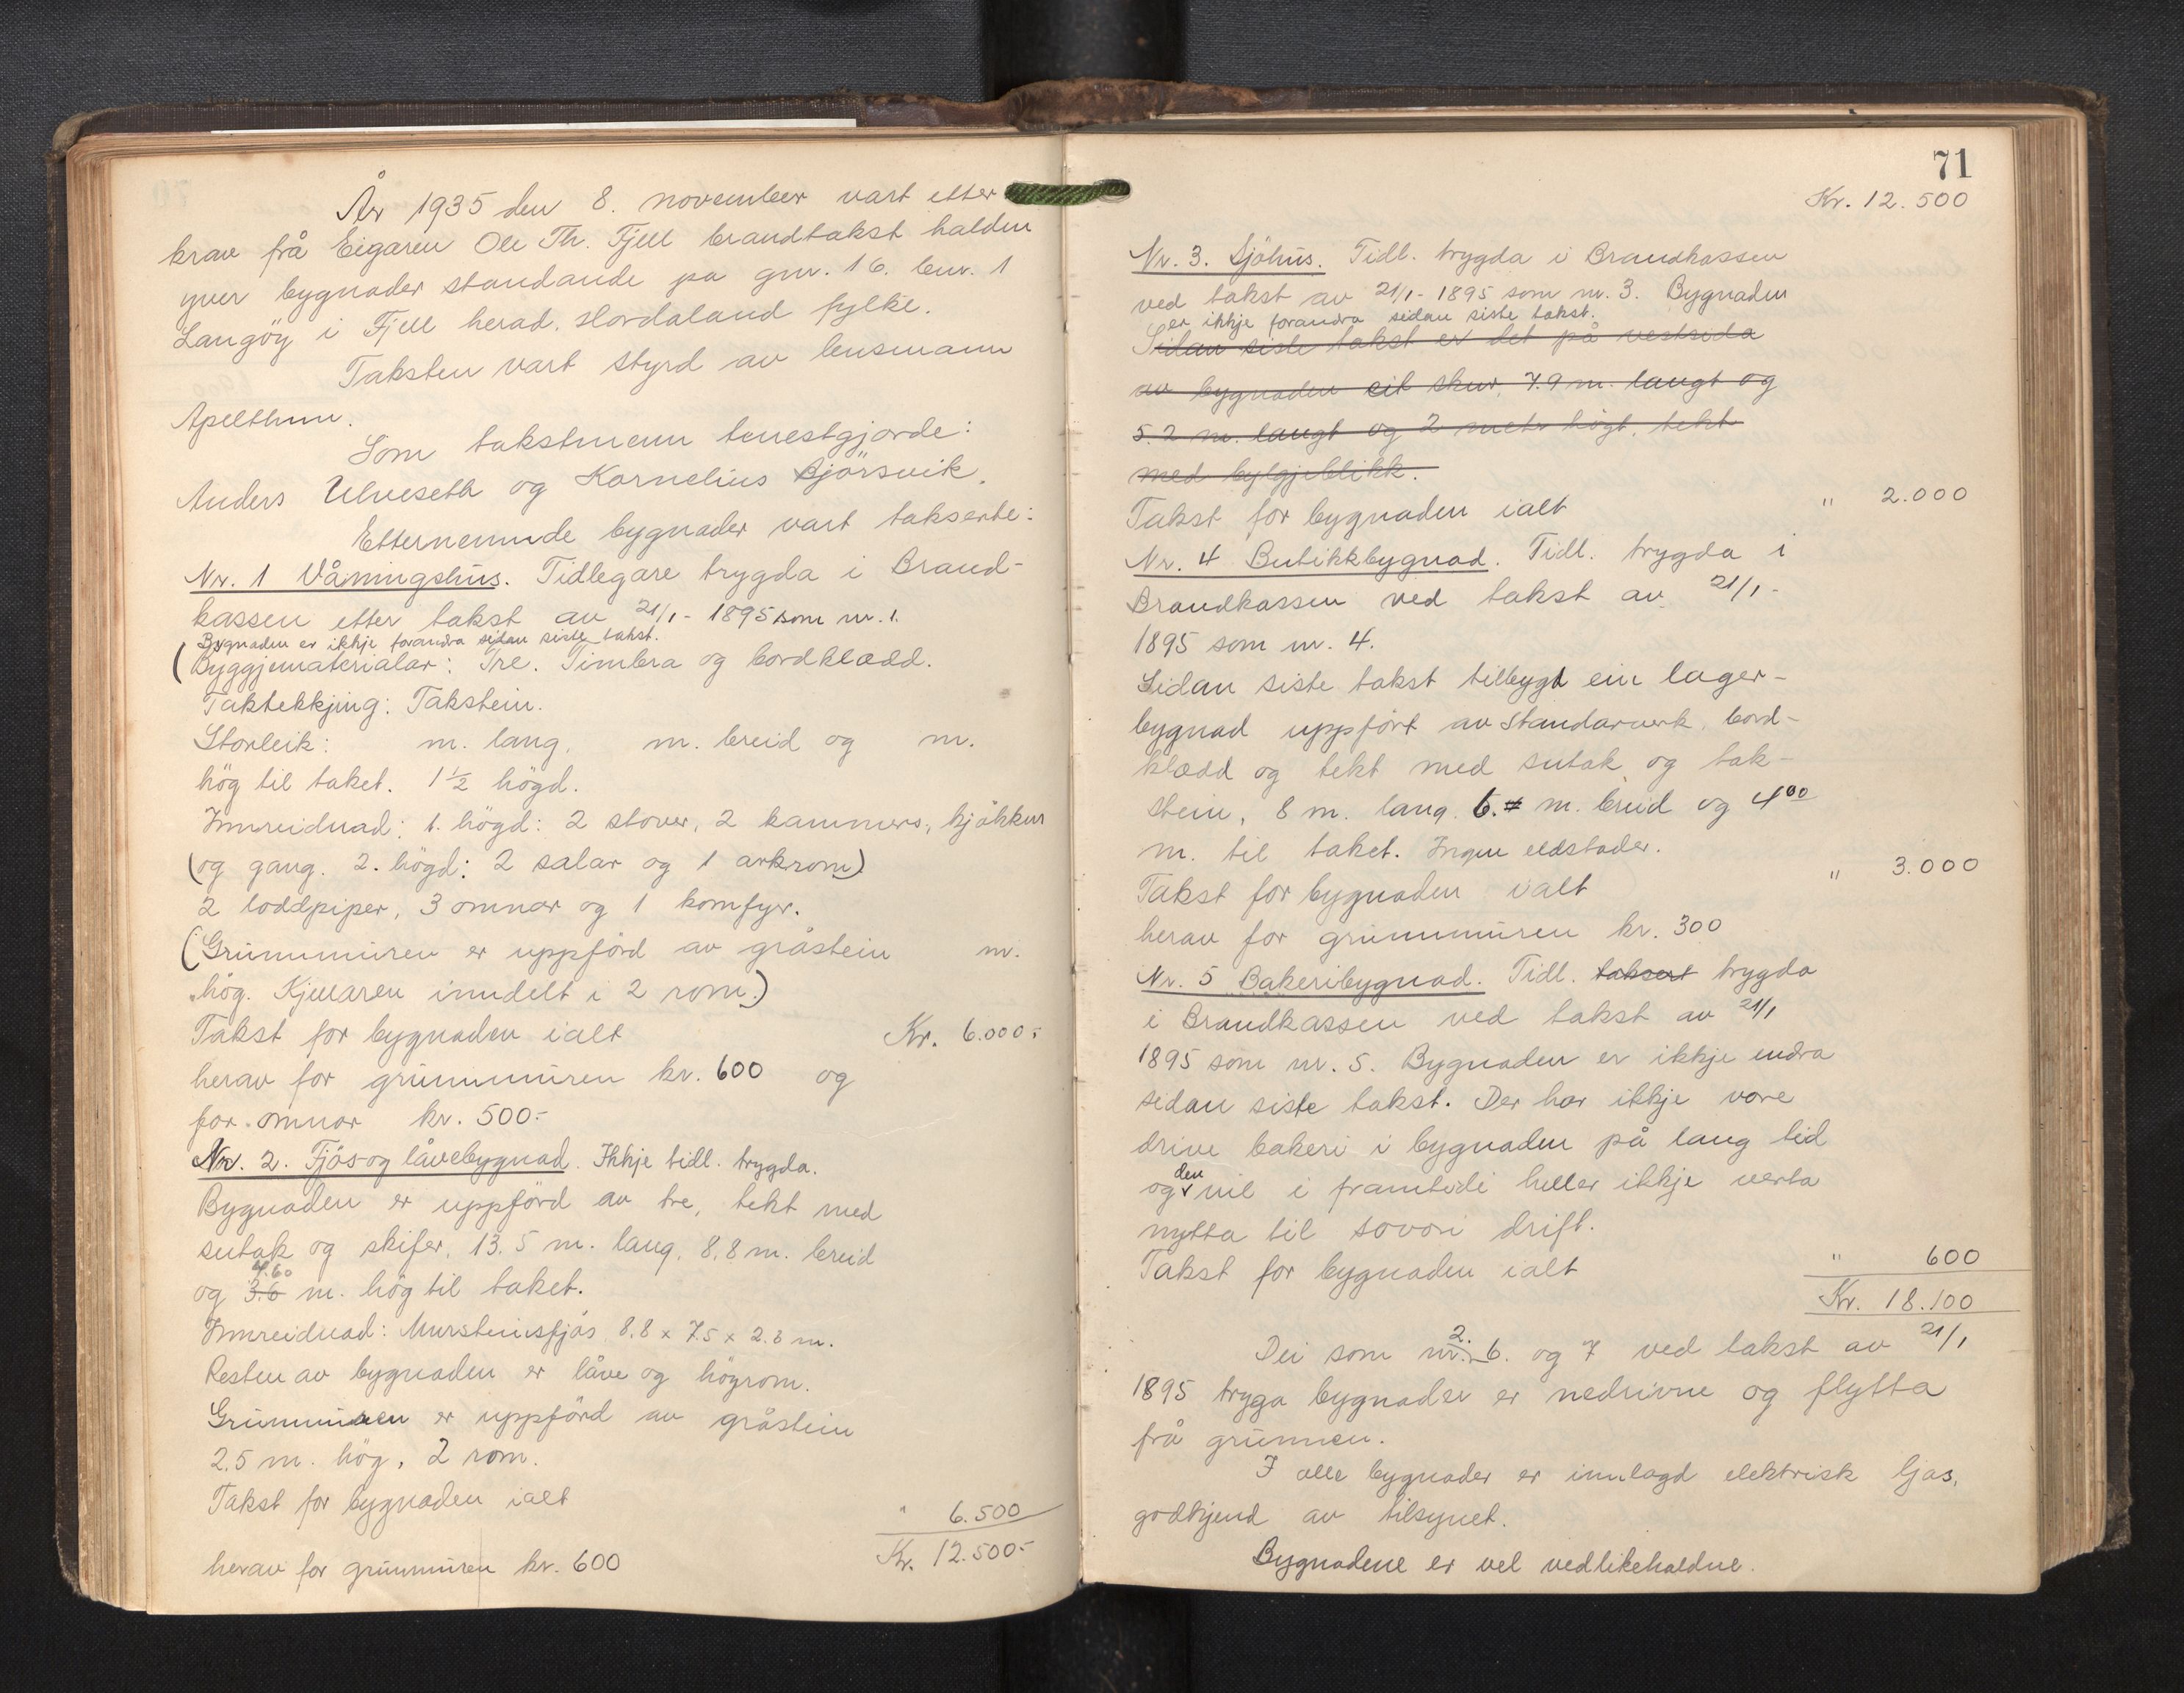 År 1935 den 8. november vart etter
krav frå Eigaren Ole Th. Fjell brandtakst halden
yver bygnader standande pa gnr. 16. bnr. 1
Langöy i Fjell herad. Hordaland fylke.
Taksten vart styrd av lensmann
Apelthun.
Som takstmenn tenestgjorde:
Anders Ulveseth og Kornelius Bjørsvik.
Etternemnde bygnader vart takserte:
Nr. 1 Våningshus. Tidlegare trygda i Brand-
kassen etter takst av 21/1 - 1895 som nr. 1.
Bygnaden er ikkje forandra sidan siste takst.
(Byggjematerialar: Tre. Timbra og bordklædd.
Taktekkjing: Takstein.
Storleik: m. lang, m. breid og m.
hög til taket. 1 1/2 högd.
Innreidnad: 1. högd: 2 stover, 2 kammers, kjøkken
(og gang. 2. högd: 2 salar og 1 arkrom)
2 loddpiper, 3 omnar og 1 komfyr.
(Grunnmuren er uppförd av gråstein m.
hög. Kjellaren inndelt i 2 rom.)
Takst for bygnaden ialt Kr. 6.000.-
herav for grunnmuren kr. 600 og
for omnar kr. 500.-
Nr. 2. Fjös- og låvebygnad. Ikkje tidl. trygda.
Bygnaden er uppförd av tre, tekt med
sutak og skifer, 13.5 m. lang, 8.8 m. breid
4.60
og 3.6 m. hög til taket.
Innreidnad: Mursteinsfjös 8.8 x 7.5 x 2.3 m.
Resten av bygnaden er låve og höyrom.
Grunnmuren er uppförd av gråstein
2.5 m. hög, 2 rom.
Takst for bygnaden ialt " 6.500
herav for grunnmuren kr. 600 Kr. 12.500.-
71
Kr. 12.500
Nr. 3. Sjöhus. Tidl. trygda i Brandkassen
ved takst av 21/1 - 1895 som nr. 3. Bygnaden
er ikkje forandra sidan siste takst.
Sidan siste takst er det på vestsida
av bygnaden eit skur, 7.9 m. langt og
5.2 m. langt og 2 meter högt, tekt
med bylgjeblikk.
Takst for bygnaden ialt " 2.000
Nr. 4 Butikkbygnad. Tidl. trygda i
Brandkassen ved takst av 21/1 -
1895 som nr. 4.
Sidan siste takst tilbygt ein lager-
bygnad uppfört av standarverk, bord-
klædd og tekt med sutak og tak-
stein, 8 m. lang 6. m. breid og 4 00
m. til taket. Ingen eldstader.
Takst for bygnaden ialt " 3.000
herav for grunnmuren kr. 300
Nr. 5 Bakeribygnad. Tidl. taksert trygda
i Brandkassen ved takst av 21/1
1895 som nr. 5. Bygnaden er ikkje endra
sidan siste takst. Der har ikkje vore
drive bakeri i bygnaden på lang tid
den
og vil i framtidi heller ikkje verta
nytta til sovori drift.
Takst for bygnaden ialt " 600
Kr. 18.100
2.
Dei som nr. 6. og 7 ved takst av 21/1
1895 tryga bygnader er nedrivne og flytta
frå grunnen.
I alle bygnader er innlagd elektrisk ljos,
godkjend av tilsynet.
Bygnadene er vel vedlikehaldne.